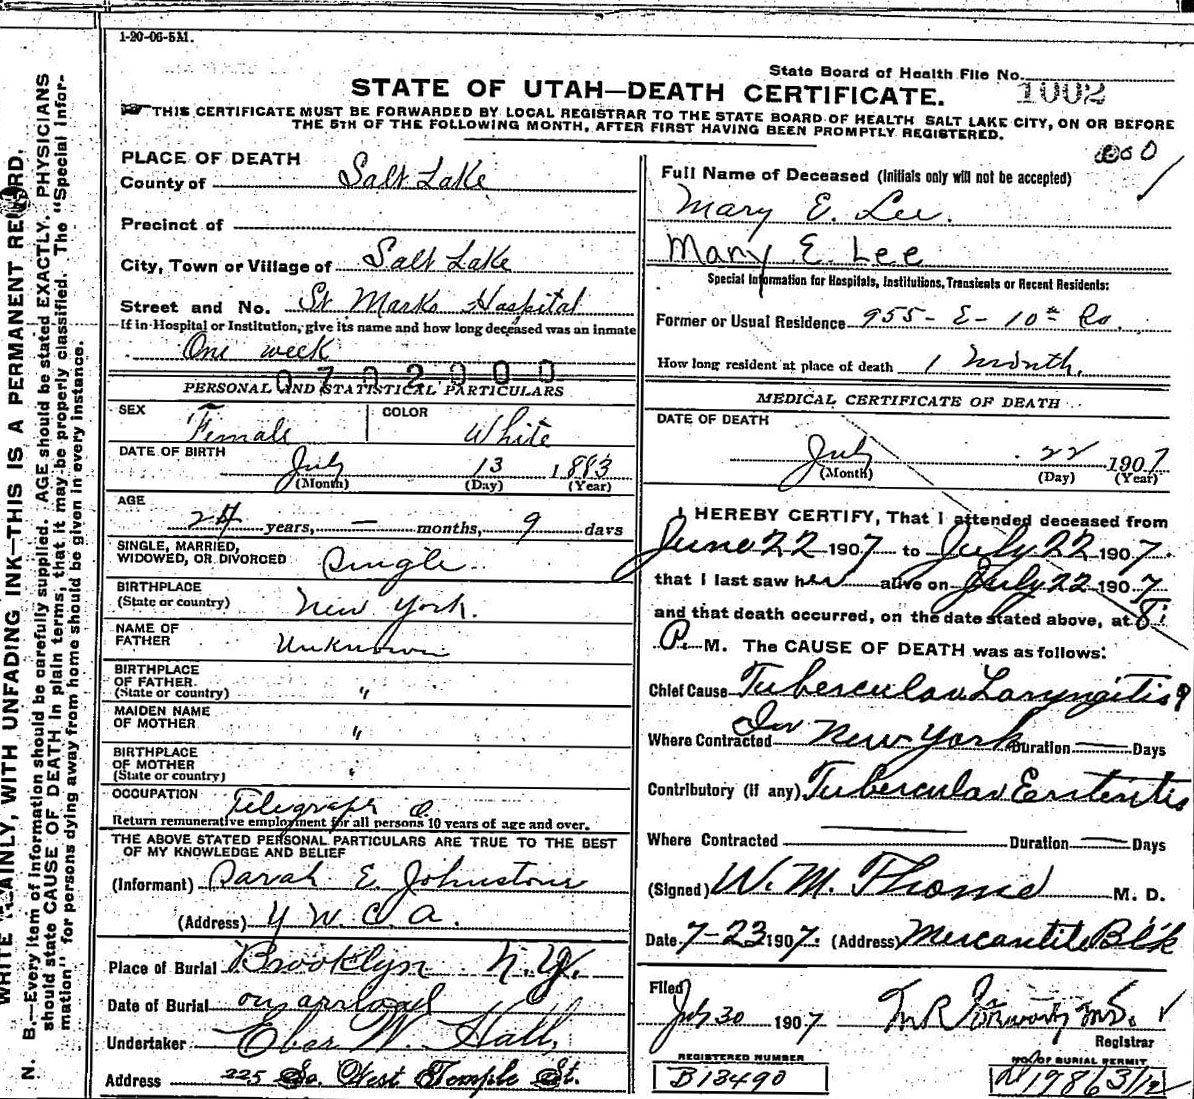 1-20-06-5M.
State Board of Health File No. 1002
STATE OF UTAH—DEATH CERTIFICATE.
THIS CERTIFICATE MUST BE FORWARDED BY LOCAL REGISTRAR TO THE STATE BOARD OF HEALTH SALT LAKE CITY, ON OR BEFORE
THE 5TH OF THE FOLLOWING MONTH, AFTER FIRST HAVING BEEN PROMPTLY REGISTERED.
WRITE PLAINLY, WITH UNFADING INK—THIS IS A PERMANENT RECORD.
N. B.—Every item of information should be carefully supplied. AGE should be stated EXACTLY. PHYSICIANS
should state CAUSE OF DEATH in plain terms, that it may be properly classified. The "Special Infor-
mation" for persons dying away from home should be given in every instance.
PLACE OF DEATH
County of Salt Lake
Precinct of
City, Town or Village of Salt Lake
Street and No. St Marks Hospital
If in Hospital or Institution, give its name and how long deceased was an inmate
One week
0702900
PERSONAL AND STATISTICAL PARTICULARS
SEX Female COLOR White
DATE OF BIRTH July 13 1883
(Month) (Day) (Year)
AGE
24 years, — months, 9 days
SINGLE, MARRIED,
WIDOWED, OR DIVORCED Single
BIRTHPLACE
(State or country) New York.
NAME OF
FATHER Unknown
BIRTHPLACE
OF FATHER
(State or country) "
MAIDEN NAME
OF MOTHER "
BIRTHPLACE
OF MOTHER
(State or country) "
OCCUPATION Telegraph O.
Return remunerative employment for all persons 10 years of age and over.
THE ABOVE STATED PERSONAL PARTICULARS ARE TRUE TO THE BEST
OF MY KNOWLEDGE AND BELIEF
(Informant) Sarah E Johnstone
(Address) Y W. C. A.
Place of Burial Brooklyn N.Y.
Date of Burial on arrival
Undertaker Eber W. Hall,
Address 225 So. West Temple St.
Full Name of Deceased (Initials only will not be accepted)
Mary E. Lee.
Mary E. Lee
Special Information for Hospitals, Institutions, Transients or Recent Residents:
Former or Usual Residence 955- E- 10th So.
How long resident at place of death 1 Month.
MEDICAL CERTIFICATE OF DEATH
DATE OF DEATH
July 22 1907
(Month) (Day) (Year)
I HEREBY CERTIFY, That I attended deceased from
June 22 1907 to July 22 1907.
that I last saw her alive on July 22 1907
and that death occurred, on the date stated above, at 8:
P. M. The CAUSE OF DEATH was as follows:
Chief Cause Tubercular Laryngitis
Where Contracted In New York Duration — Days
Contributory (if any) Tubercular Enteritis
Where Contracted Duration — Days
(Signed) W. M. Thome M. D.
Date 7-23 1907. (Address) Mercantile Blk
Filed
July 30 1907
Registrar
REGISTERED NUMBER
B13490
NO. OF BURIAL PERMIT